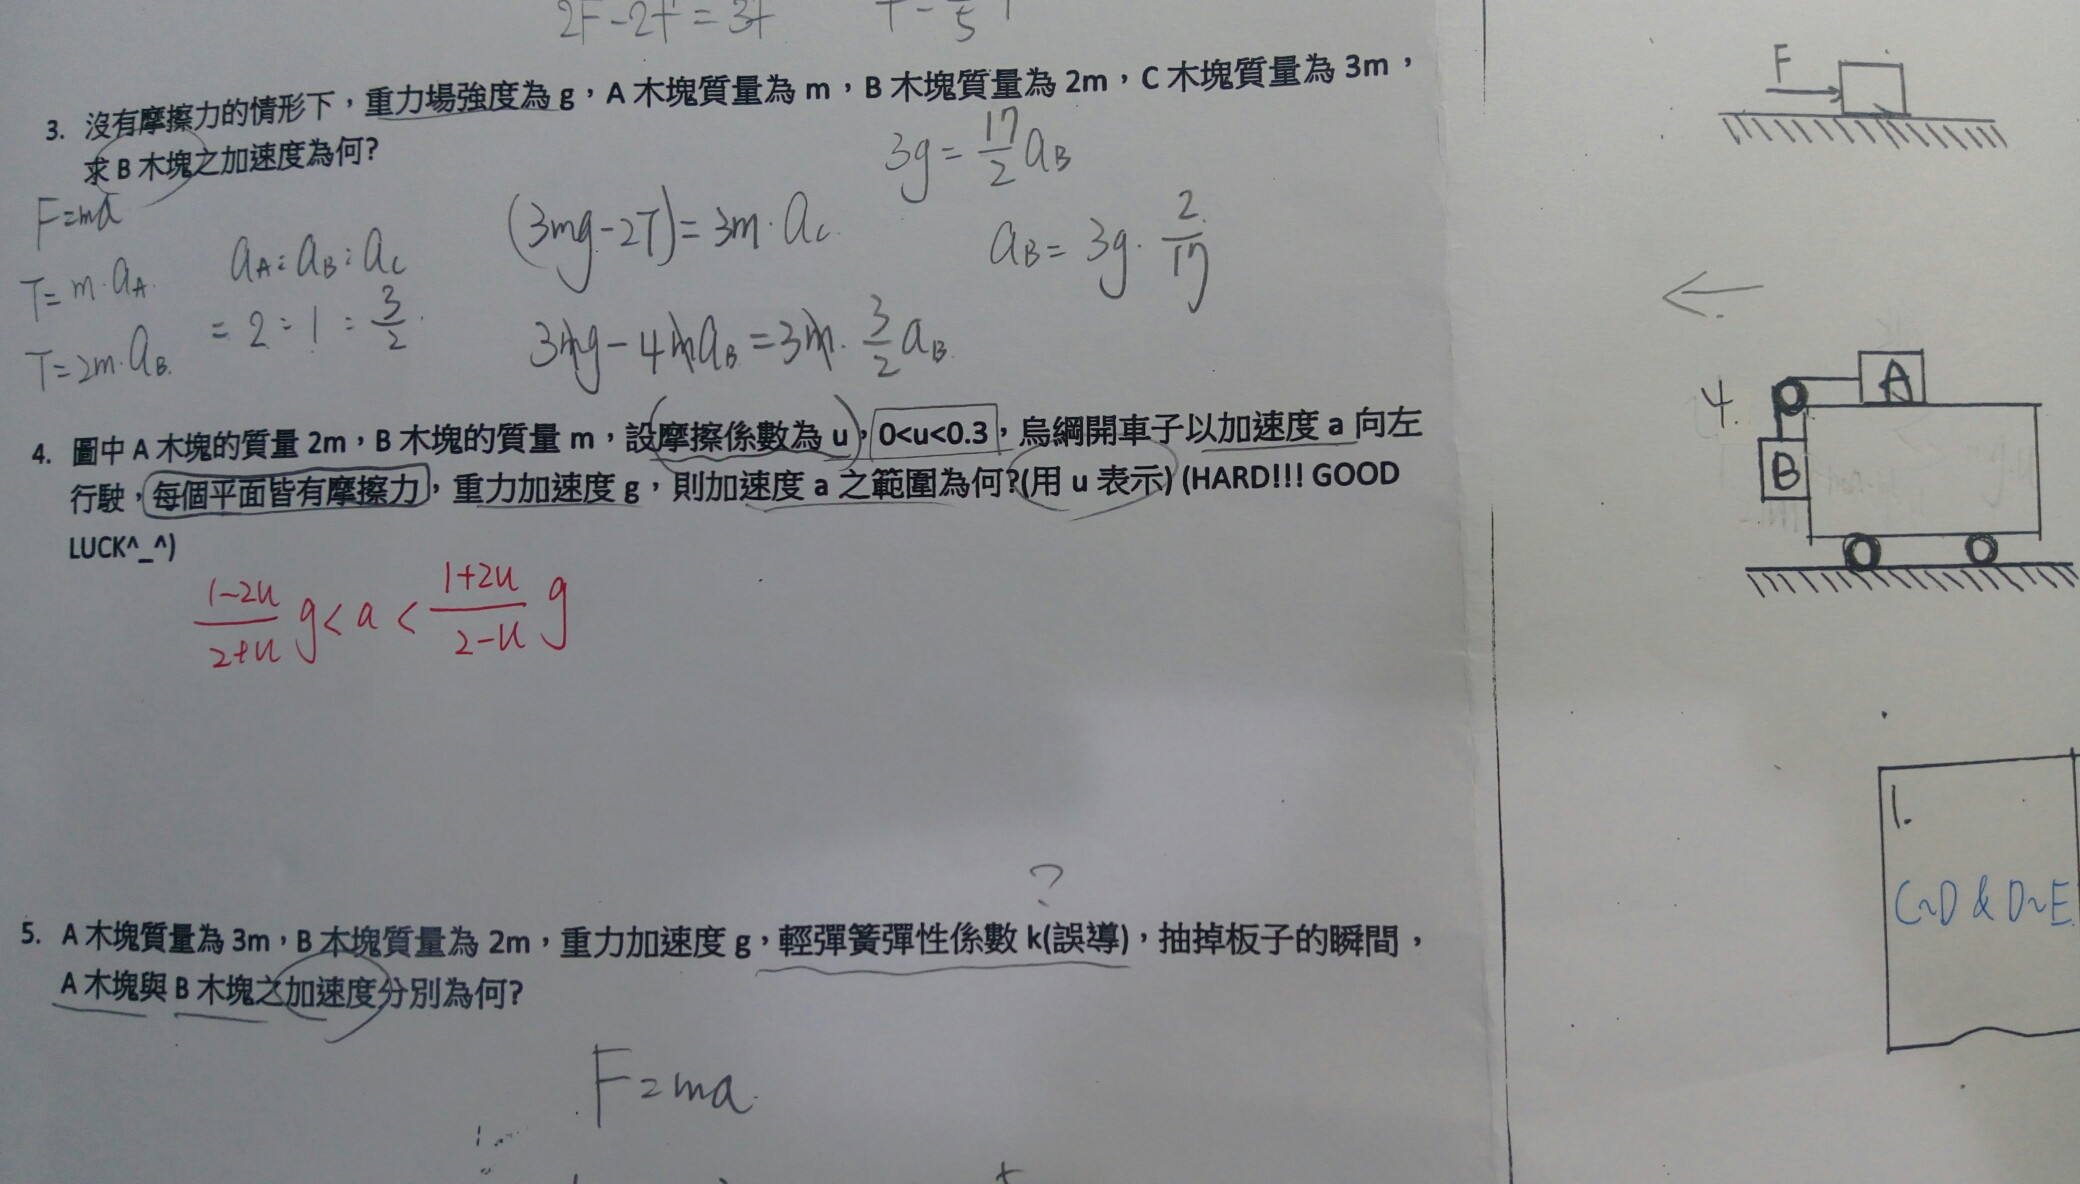 2F-2f=3f
3. 沒有摩擦力的情形下，重力場強度為 g，A 木塊質量為 m，B 木塊質量為 2m，C 木塊質量為 3m，
求 B 木塊之加速度為何?
3g = 17/2 aB
F=ma
(3mg-2T)=3m·ac
aB= 3g·2/17
T=m·aA
aA:aB:ac
=2:1:3/2
T=2m·aB
3mg-4maB=3m·3/2 aB
4. 圖中 A 木塊的質量 2m，B 木塊的質量 m，設摩擦係數為 u，0<u<0.3，烏綱開車子以加速度 a 向左
行駛，每個平面皆有摩擦力，重力加速度 g，則加速度 a 之範圍為何?(用 u 表示) (HARD!!! GOOD
LUCK^_^)
1-2u/2+u g<a<1+2u/2-u g
?
5. A 木塊質量為 3m，B 木塊質量為 2m，重力加速度 g，輕彈簧彈性係數 k(誤導)，抽掉板子的瞬間，
A 木塊與 B 木塊之加速度分別為何?
F=ma
F
4.
A
B
1.
C~D & D~E